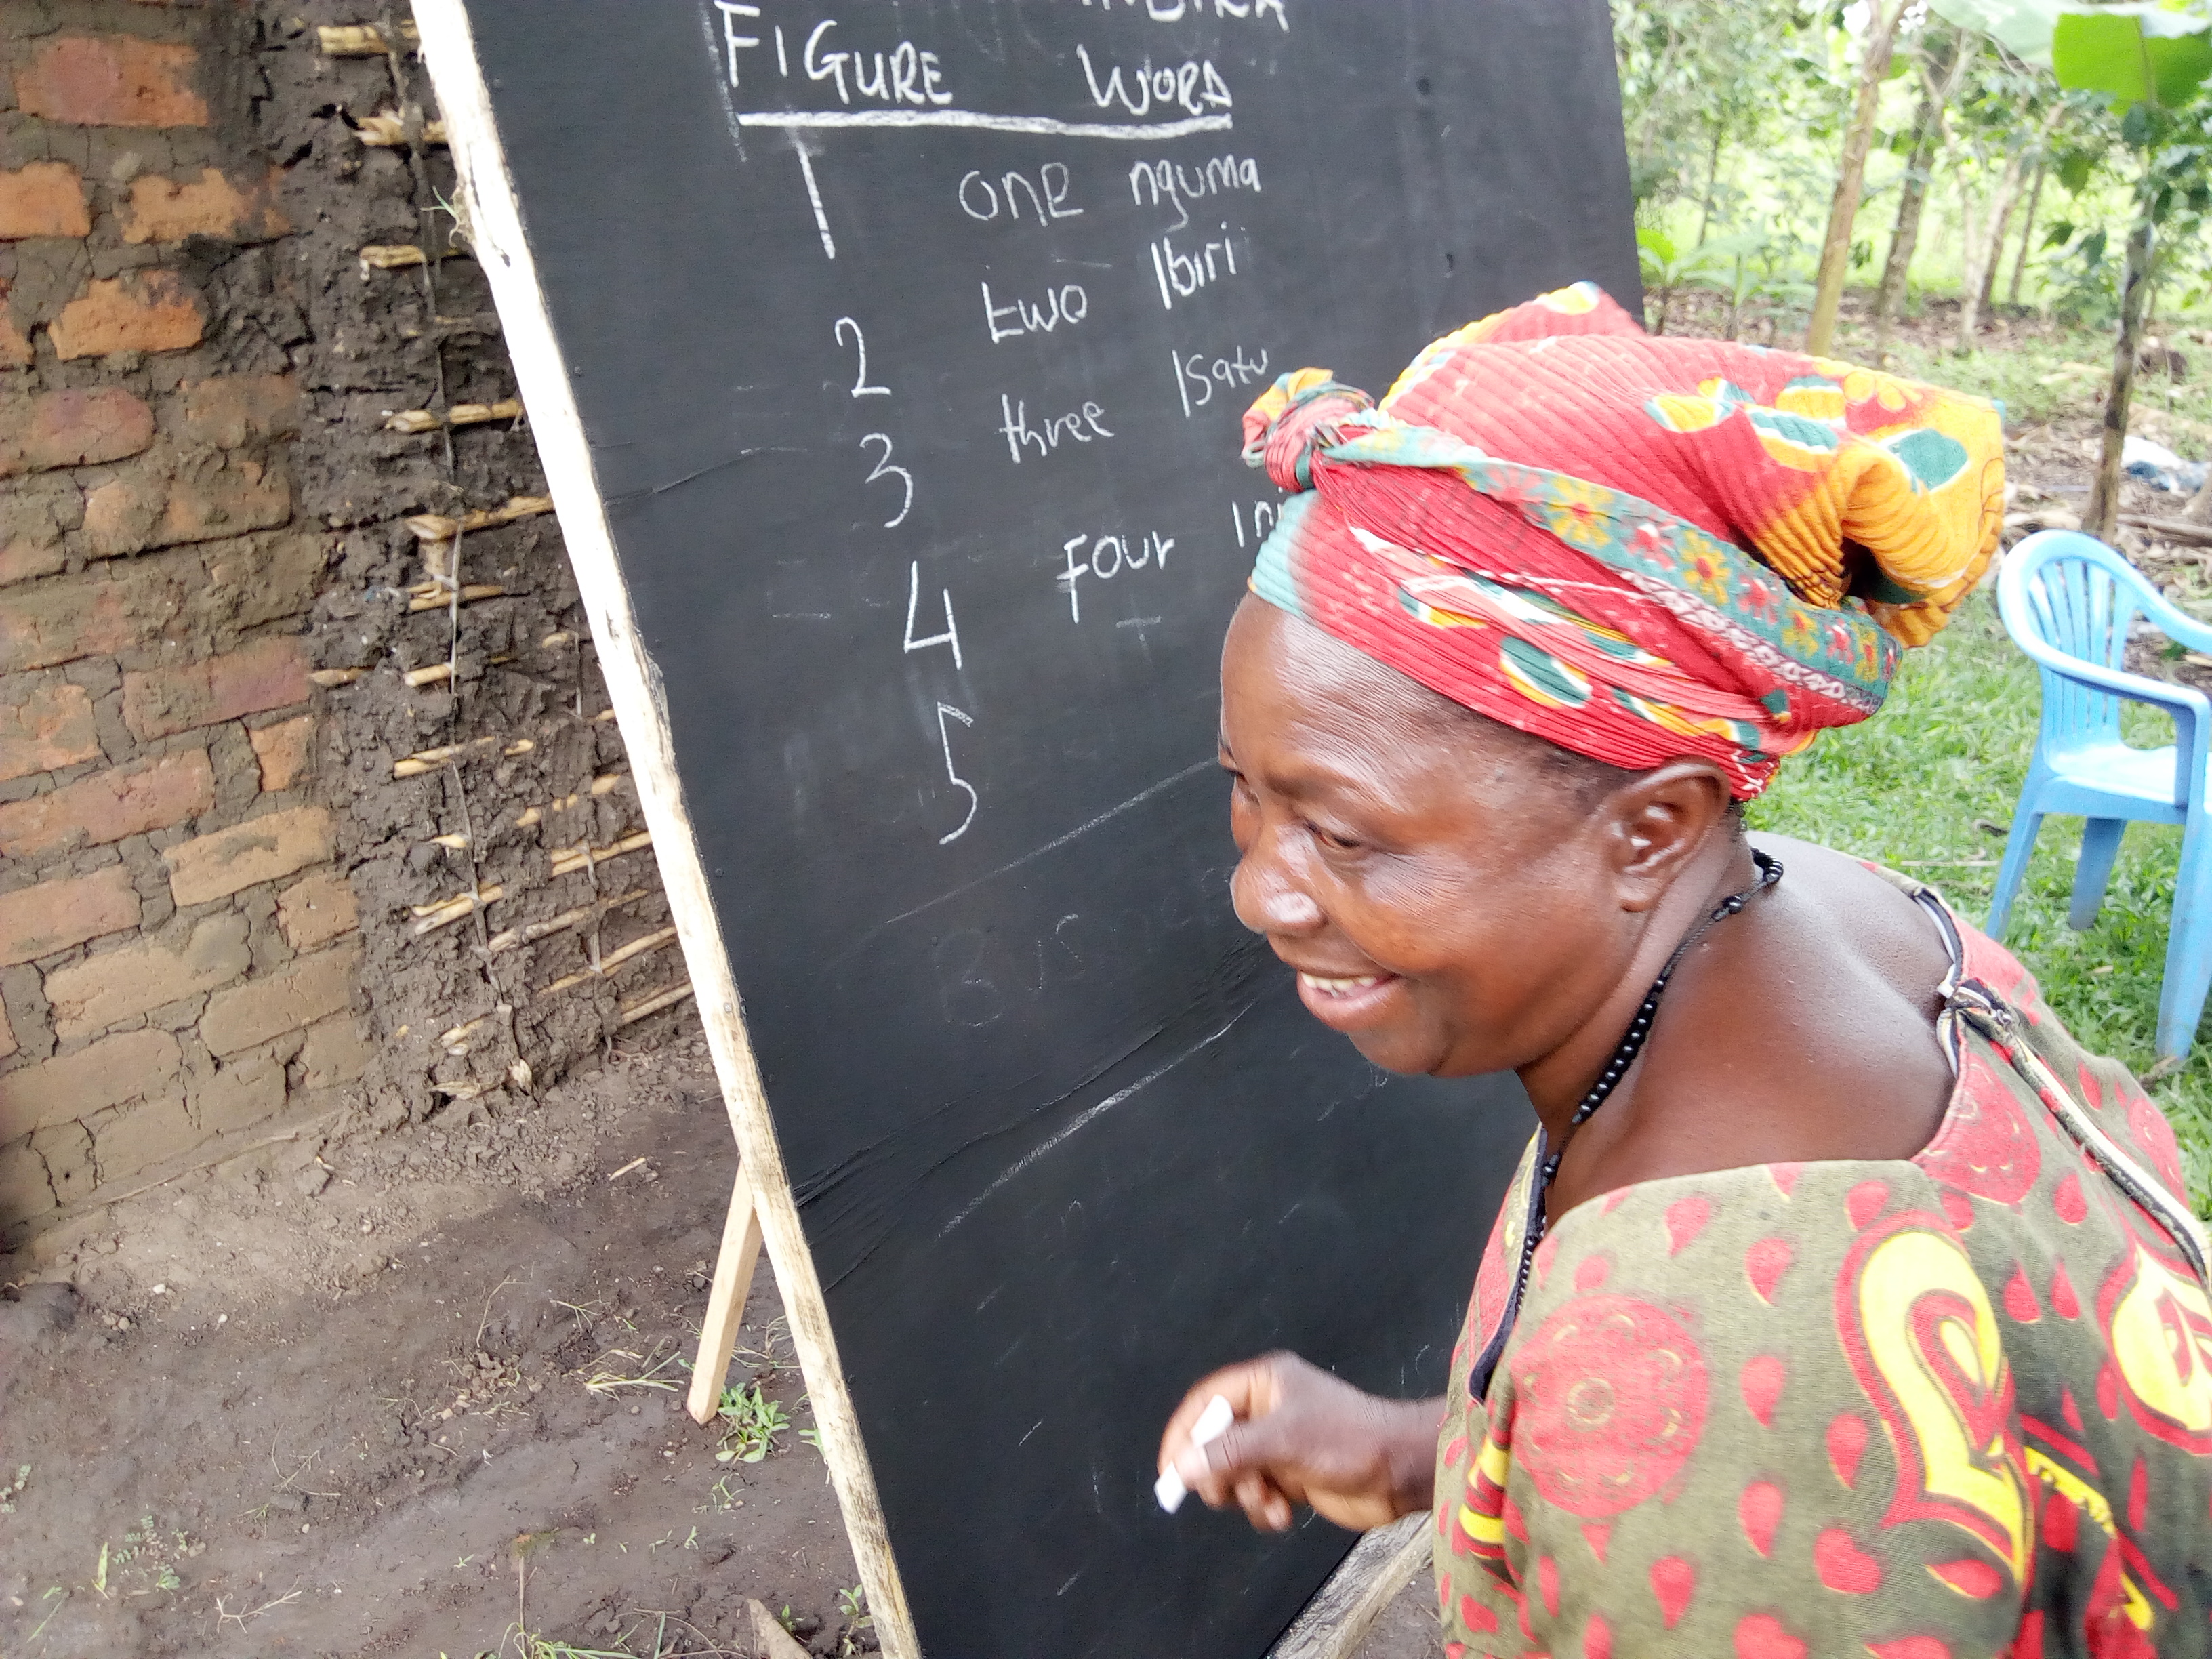 FIGURE WORD
1 one nguma
2 two Ibiri
3 three Isatu
4 Four
5